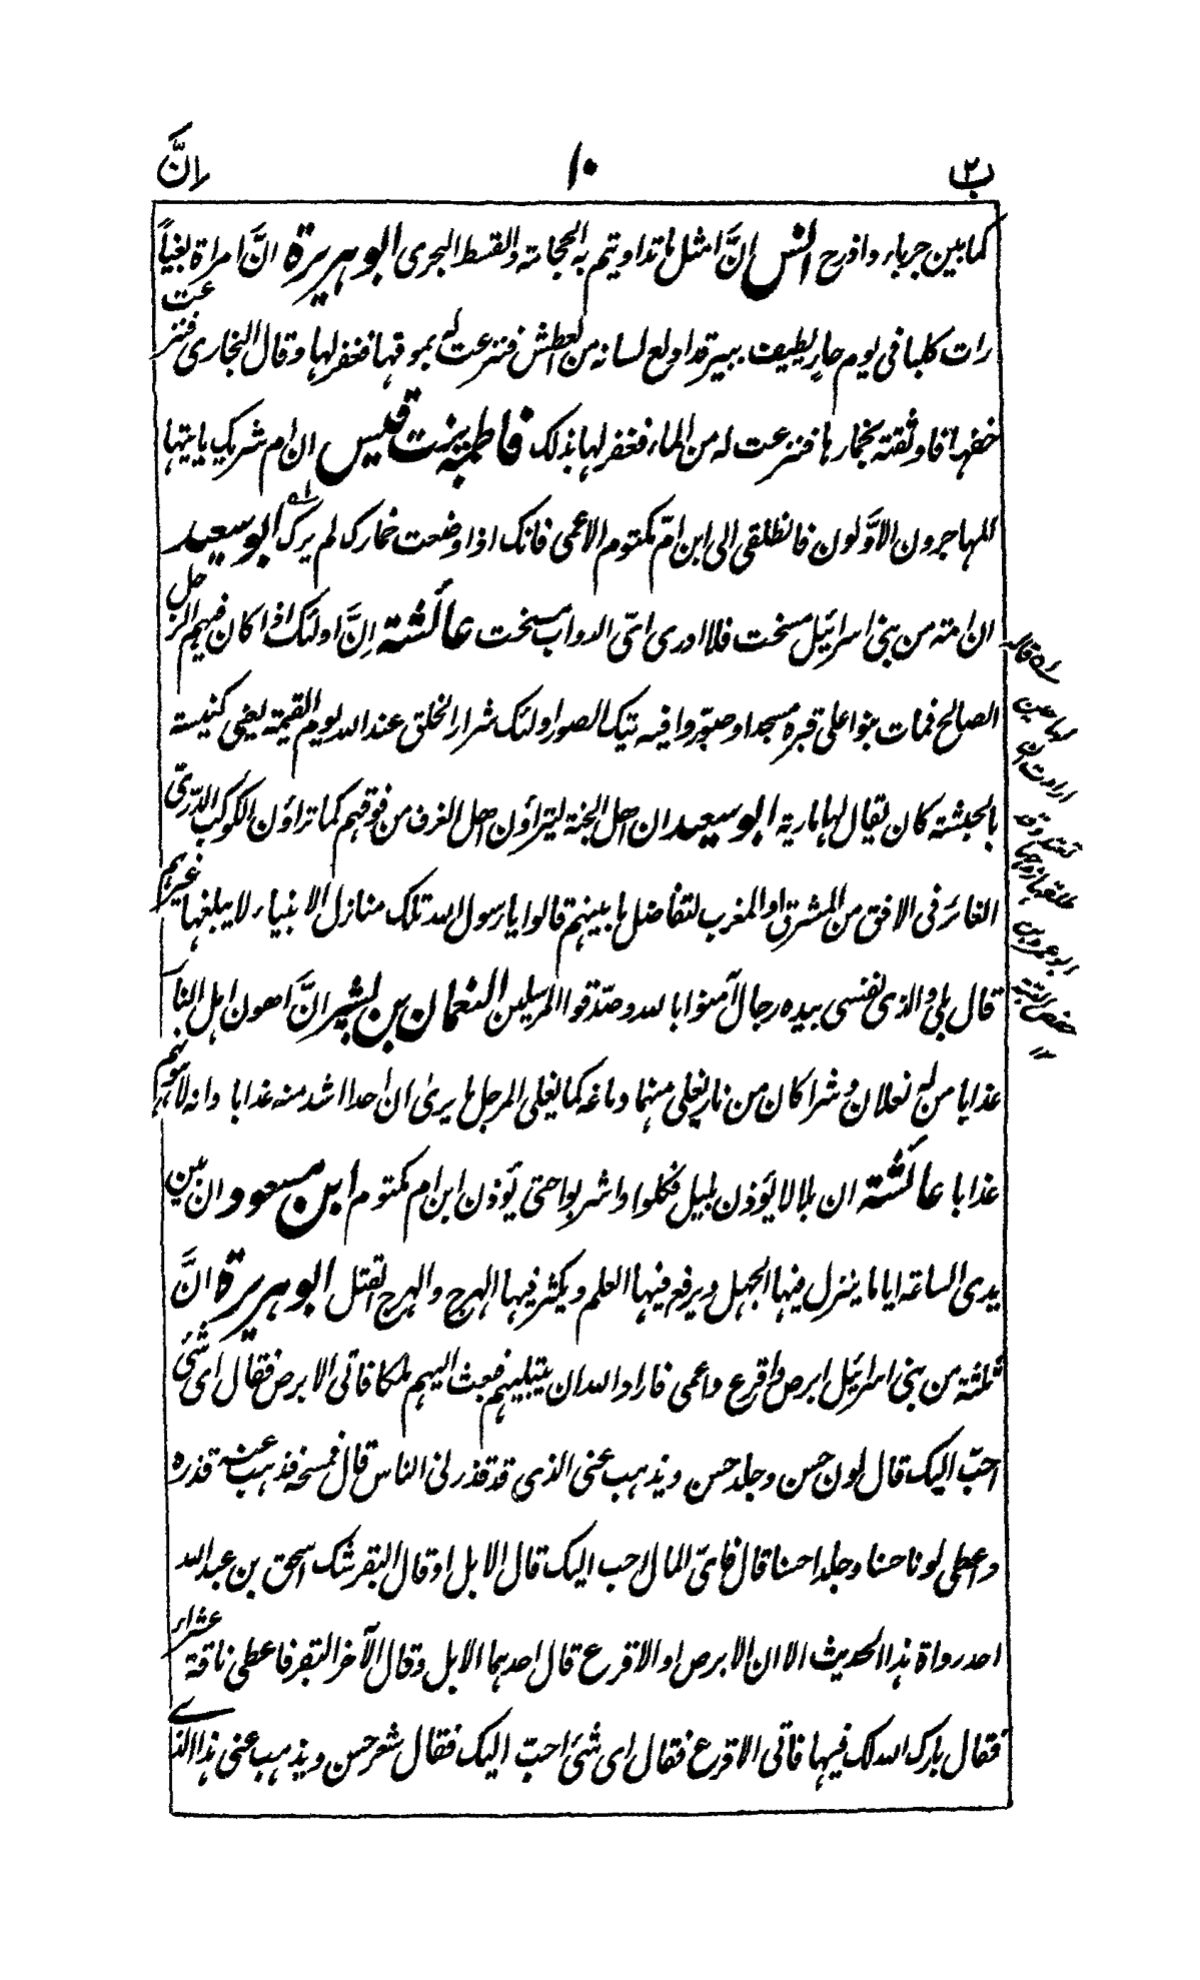 ب٢ ١٠ إنَّ
كما بين جرباء واذرح انس إنَّ امثل ما تداويتم به الحجامة والقسط البحرى ابو هريرة انَّ امراة بغياً
رات كلبا فى يوم حارٍ يطيف ببير قد ادلع لسانه من العطش فنزعت له بموقها فغفر لها وقال البخارى فنزعت
خفها فاوثقته بخمارها فنزعت له من الماء فغفر لها بذلك فاطمة بنت قيس ان ام شريك ياتيها
المهاجرون الاوَّلون فانطلقى الى ابن امّ مكتوم الاعمى فانك اذا وضعت خمارك لم يرك ابو سعيد
ان امة من بنى اسرائيل مسخت فلا ادرى اىّ الدواب مسخت عائشة اِنَّ اولئك اذا كان فيهم الرجل
الصالح فمات بنوا على قبره مسجدا وصوّروا فيه تيك الصور اولئك شرار الخلق عند الله يوم القيمة يعنى كنيسة
بالحبشة كان يقال لها مارية ابو سعيد ان اهل الجنة ليتراؤن اهل الغرف من فوقهم كما تراؤن الكوكب الدّرّىّ
الغائر فى الافق من المشرق او المغرب لتفاضل ما بينهم قالوا يا رسول الله تلك منازل الانبياء لا يبلغها غيرهم
قال بلى والذى نفسى بيده رجال آمنوا بالله وصدّقوا المرسلين النعمان بن بشير انَّ اهون اهل النار
عذابا من له نعلان وشراكان من نار يغلى منهما دماغه كما يغلى المرجل ما يرى ان احدا اشد منه عذابا وانه لاهونهم
عذابا عائشة ان بلالا يؤذن بليل فكلوا واشربوا حتى يؤذن ابن ام مكتوم ابن مسعود ان بين
يدى الساعة اياما ينزل فيها الجهل ويرفع فيها العلم ويكثر فيها الهرج والهرج القتل ابو هريرة انَّ
ثلثة من بنى اسرائيل ابرص واقرع واعمى فاراد الله ان يبتليهم فبعث اليهم ملكا فاتى الابرص فقال اى شئ
احبّ اليك قال لون حسن وجلد حسن ويذهب عنى الذى قد قذرنى الناس قال فمسحه فذهب عنه قذره
واعطى لونا حسنا وجلدا حسنا قال فاىّ المال احب اليك قال الابل او قال البقر شك اسحق بن عبد الله
احد رواة هذا الحديث الا ان الابرص او الاقرع قال احدهما الابل وقال الآخر البقر فاعطى ناقة عشراء
فقال بارك الله لك فيها فاتى الاقرع فقال اى شئ احبّ اليك فقال شعر حسن ويذهب عنى هذا الذى
له قاله
لها حين
ارادت ان
تعتد وقد
طلقها زوجها
ابو عمرو بن
حفص البتة